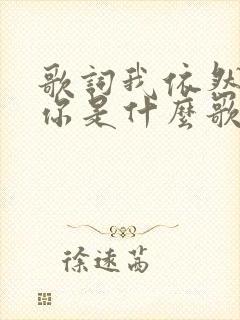 歌詞我依然
你是什麼歌
徐速茜